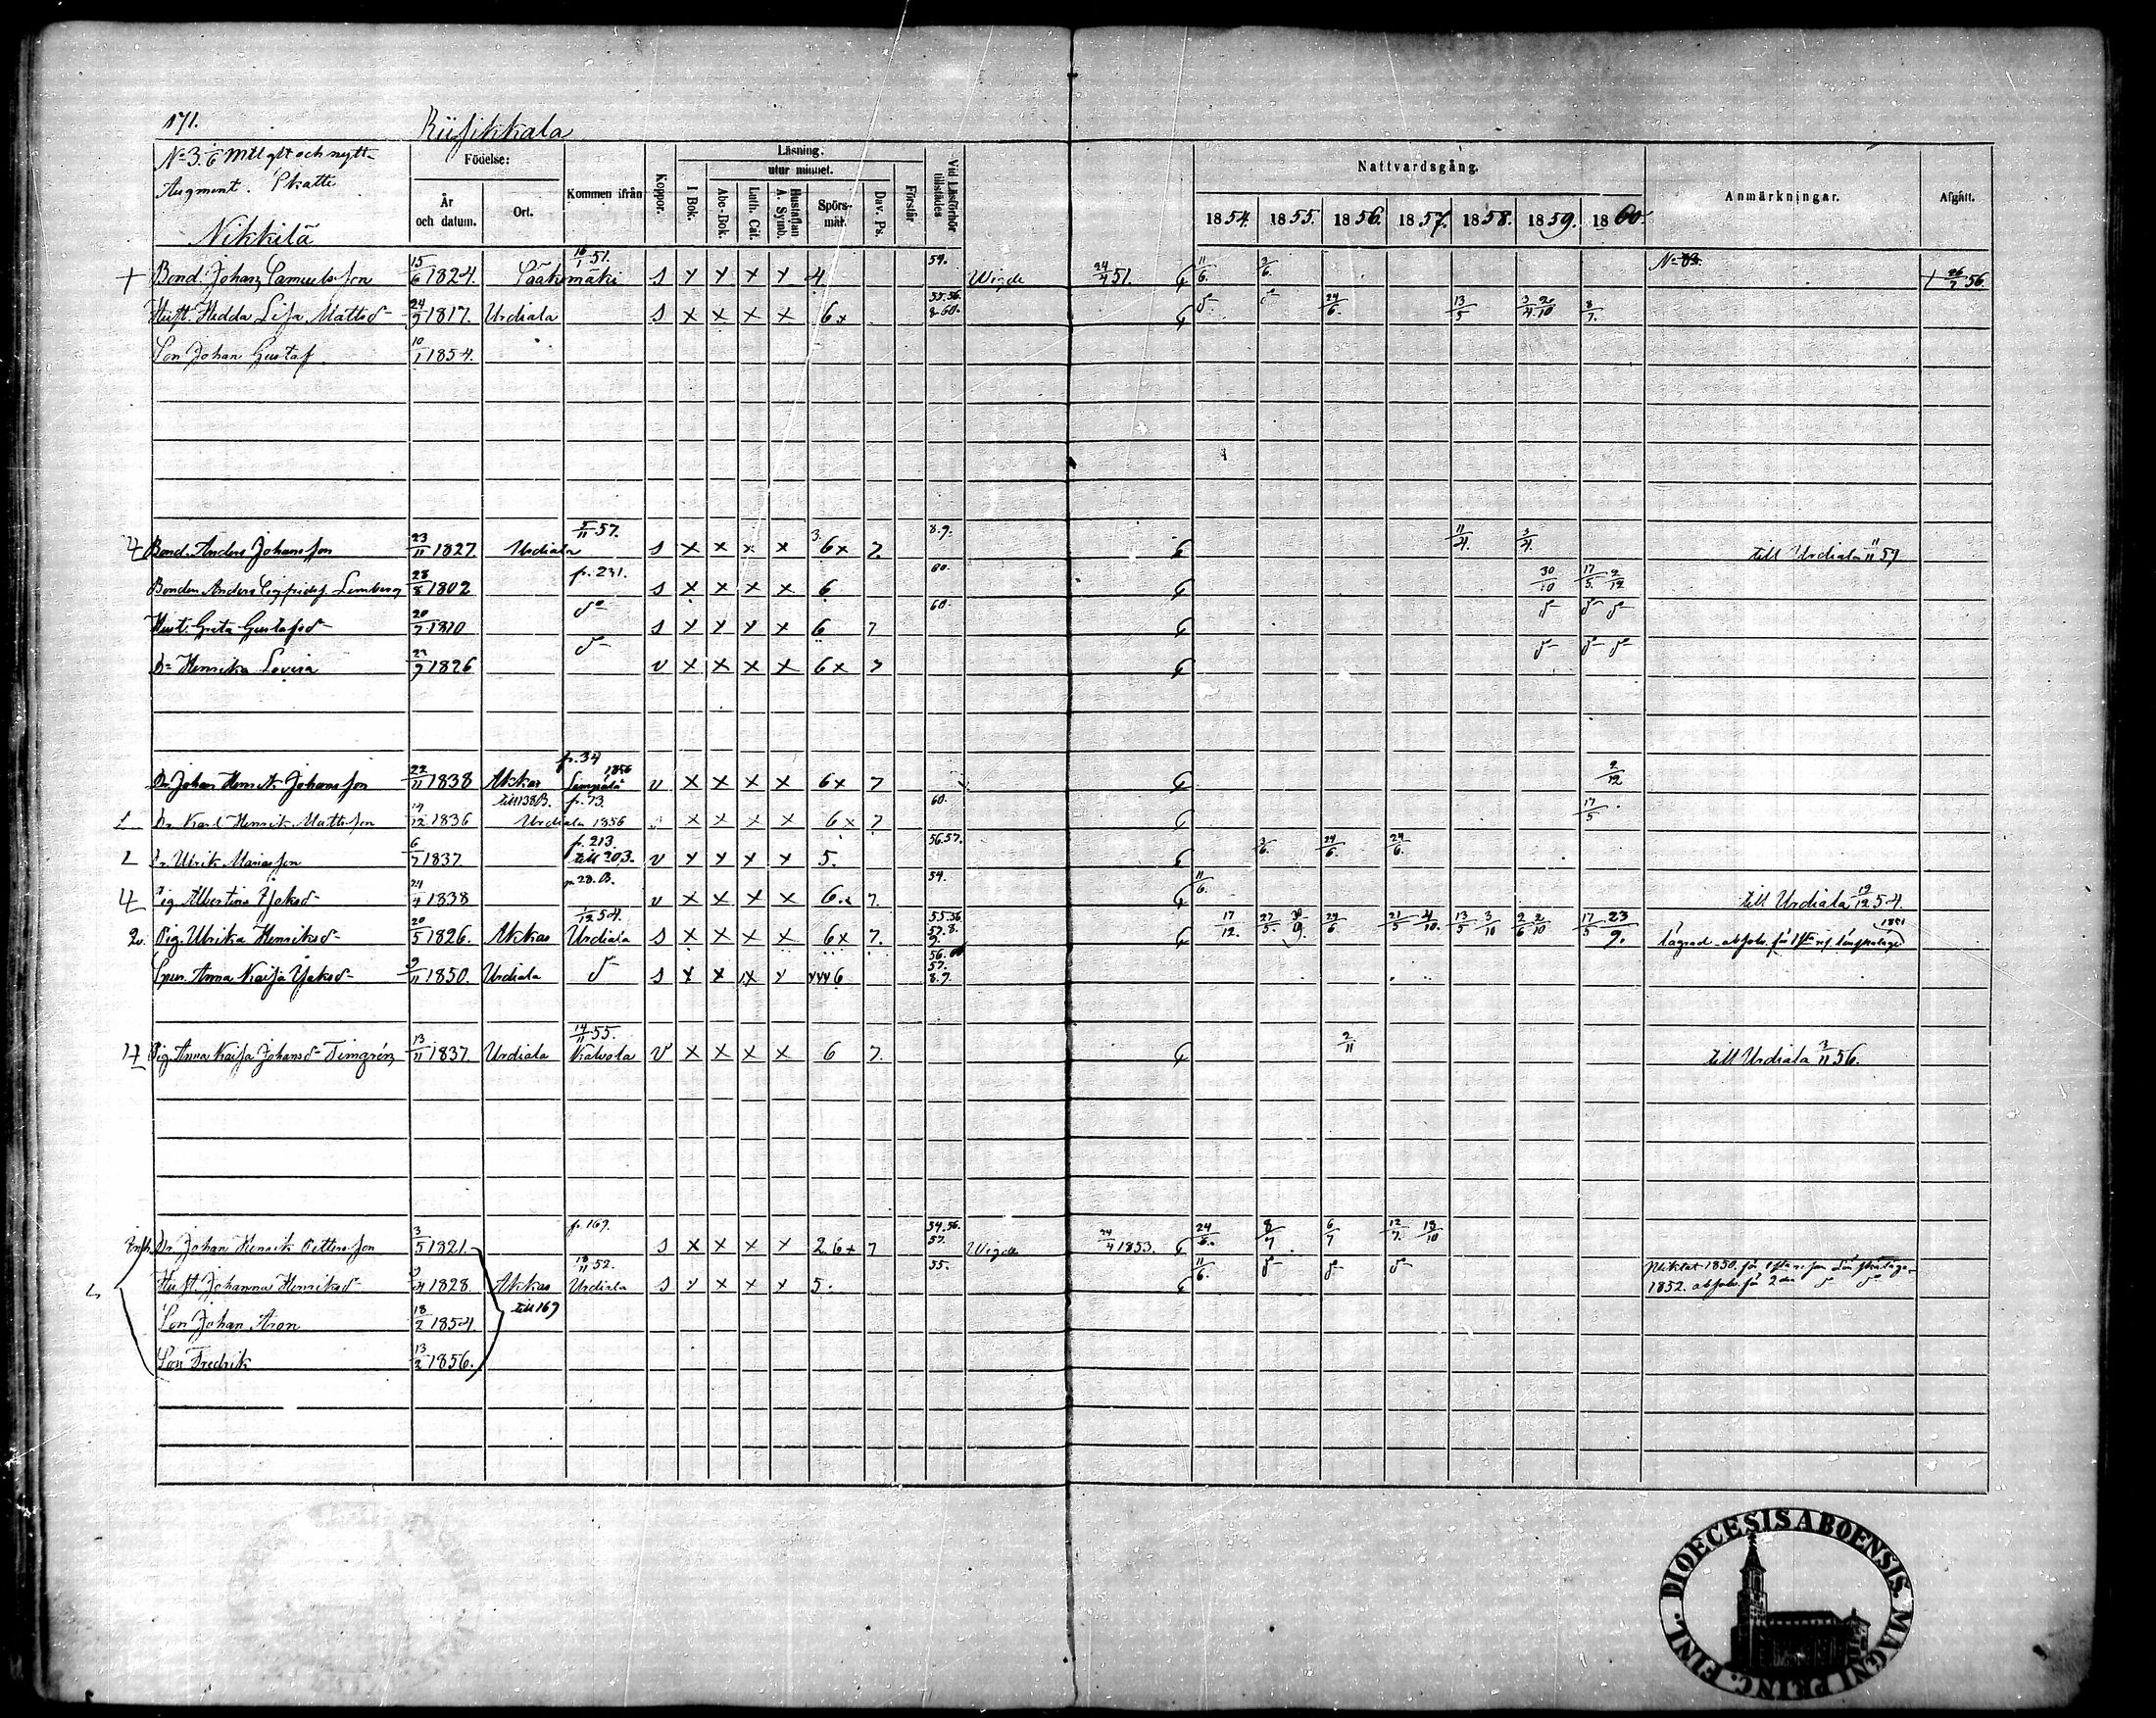 171. Riisikkala
No 3. 1/6 Mtl gtt och nytt
Augment. Skatte
Nikkilä
Födelse: År och datum. Ort. Kommen ifrån Koppor. Läsning. I Bok. utur minnet. Abc-Bok. Luth. Cat. Hustaflan A. Symb. Spörsmål. Dav. Ps. Förstår Vid Läsförhör tillstädes Nattvardsgång. 1854. 1855. 1856. 1857. 1858. 1859. 1860. Anmärkningar. Afgått.
+ Bond. Johan Samuelsson 15/6 1824. 16/1 51. Sääksmäki s 4 54. Wigde 24/4 51. 11/6. 3/6. No + 26/7 56.
Hust. Hedda Lisa Mattsd 24/9 1817. Urdiala s x x x x 6x 55.56. 8.60. do do 24/6. 13/5 3/4 2/10 8/7.
Son Johan Gustaf 10/1 1854.
Bond. Anders Johansson 23/11 1827 Urdiala 5/11 57. s x x x x 3. 6x 7. 8.9. 11/4. 3/4. till Urdiala 11 59
Bonden Anders Sigfridsf Lemberg 28/8 1802 fr. 231. s x x x x 6 60. 30/10 17/5. 2/12
Hust. Greta Gustafsd 20/7 1810 do s 6 7 60. do do do
Dr Henrika Lovisa 22/9 1826 do v x x x x 6x 7 do do do
Dr Johan Henrik Johansson 22/11 1838 Akkas fr. 34 1856 Lempälä v x x x x 6x 7 2/12
Dr Karl Henrik Mattsson 12 1836 till 138 B. fr. 73. Urdiala 1856 x x x x 6x 7 60. 17/5
Dr Ulrik Mariasson 6/7 1837 fr. 213. till 203. v 5. 56.57. 3/6. 24/6. 24/6.
Pig. Albertina Jakosd 24/4 1838 28. B. v x x x x 6.x 7. 54. 11/6. till Urdiala 19/12 54.
Pig. Ulrika Henriksd 20/5 1826. Akkas 1/12 54. Urdiala s x x x x 6x 7. 55.56 57.8. 9. 17/12. 27/5. 24/6 21/5 4/10. 13/5 3/10 2/6 2/10 17/5 23/9. 1851
Spin. Anna Kaisa Jakosd 9/11 1850. Urdiala do s 6 56.60 57. 8.9.
Pig. Anna Kaisa Johansd Timgrén 13/11 1837. Urdiala 14/11 55. Kalvola v x x x x 6 7. 2/11 till Urdiala 3/11 56.
Dr Johan Henrik Pettersson 3/5 1821. fr. 169. s x x x x 2.6x 7 54.56. 57. Wigde 24/4 1853. 24/6. 8/7 6/7 12/7. 18/10
Hust. Johanna Henriksd 4 1828. Akkas 18/11 52. Urdiala s 5. 55. 11/6. do do do Pliktat 1850. för 1sta
till 169 1852. absolv. för 2dra do do
Son Johan Aron 18/2 1854.
Son Fredrik 13/2 1856.
DIOECESIS ABOENSIS. MAGNI PRINC. FINL.